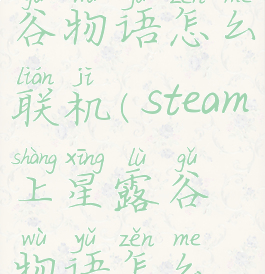 谷物语怎么
lián jī
联机(steam
shàng xīng lù gǔ
上星露谷
wù yǔ zěn me
物语怎么